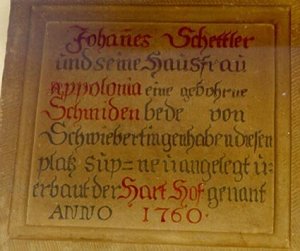 Johañes Schettler
und seine Hausfrau
Appolonia eine gebohrne
Schmiden bede von
Schwiebertingen haben diesen
platz sup= neu angelegt u:
erbaut der Hart Hof genant
ANNO 1760.